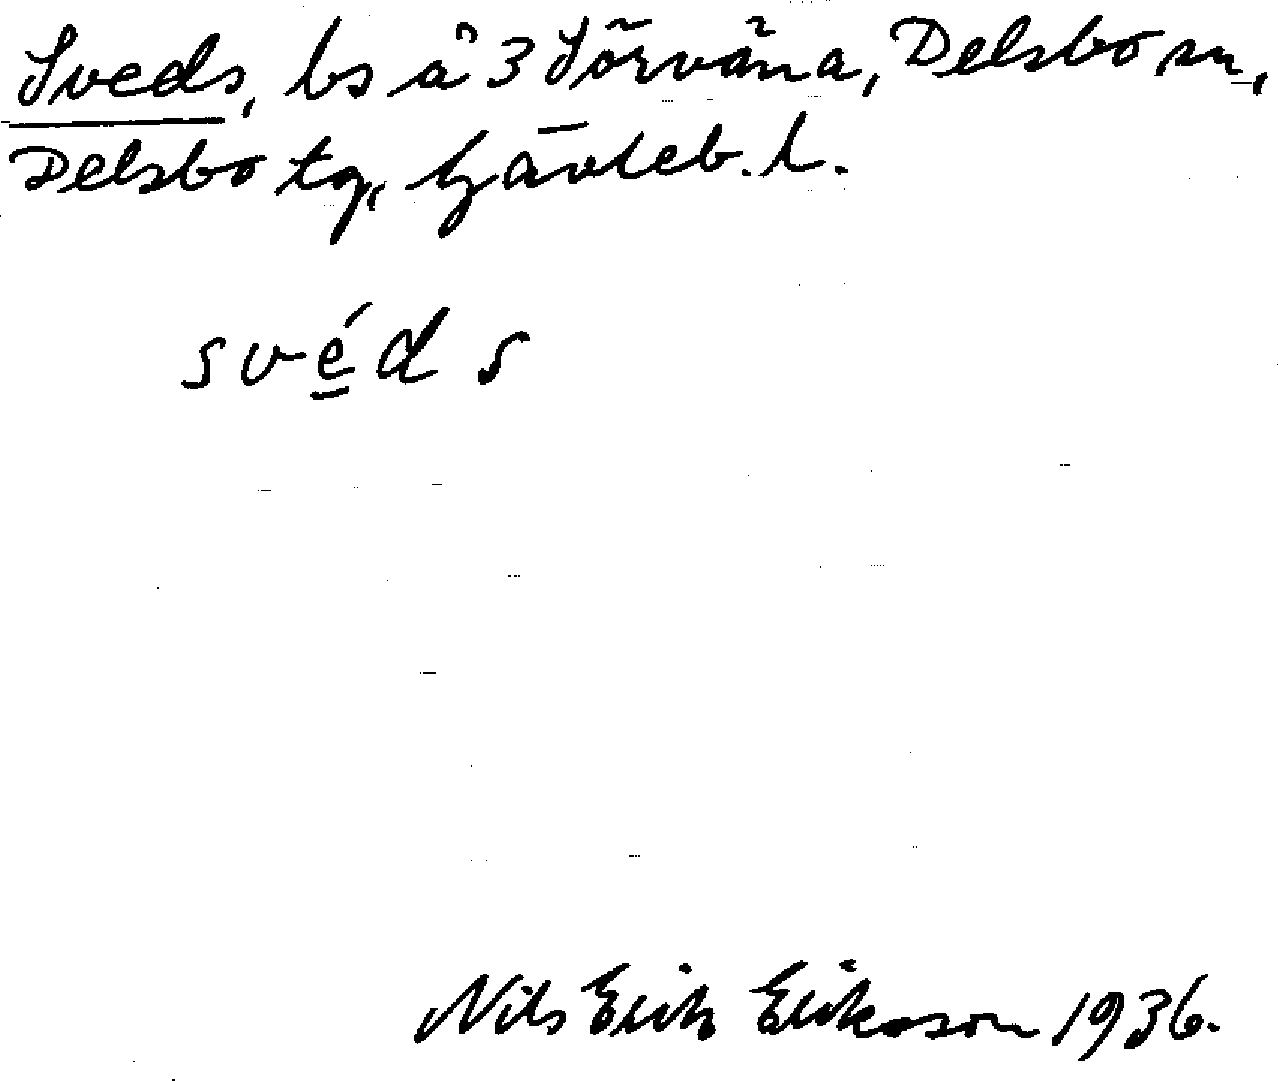 Sveds, bs å 3 Sörväna, Delsbo sn,
Delsbo tg, Gävleb. l.
svéds
Nils Erik Eriksson 1936.